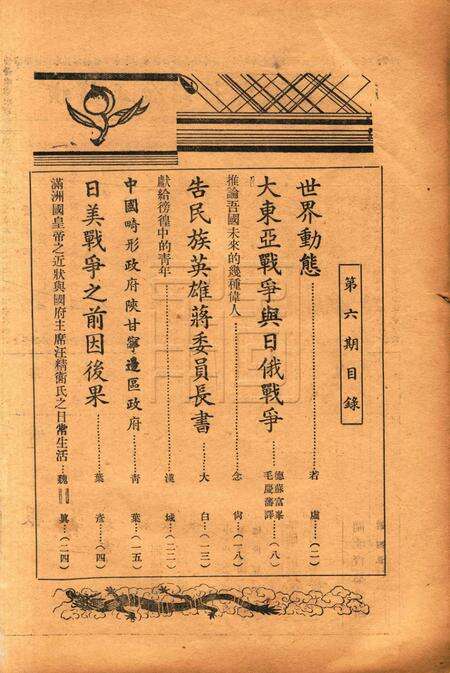 第六期目錄
世界動態……若虛…(二)
大東亞戰爭與日俄戰爭……德蘇富峯 毛慶藩譯…(八)
推論吾國未來的幾種偉人……念尙…(一八)
告民族英雄蔣委員長書……大白…(一三)
獻給徬徨中的靑年……漢城…(二二)
中國畸形政府陝甘寧邊區政府……靑葉…(一五)
日美戰爭之前因後果……葉彥…(四)
滿洲國皇帝之近狀與國府主席汪精衞氏之日常生活…魏眞…(二四)